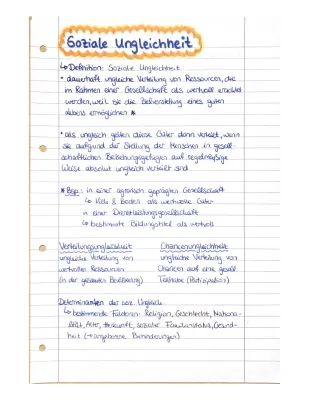 Soziale Ungleichheit
↳ Definition: Soziale Ungleichheit
• dauerhaft ungleiche Verteilung von Ressourcen, die
im Rahmen einer Gesellschaft als wertvoll erachtet
werden, weil sie die Bereitstellung eines guten
Lebens ermöglichen *
• als ungleich gelten diese Güter dann verteilt, wenn
sie aufgrund der Stellung der Menschen in gesell-
schaftlichen Beziehungsgefügen auf regelmäßige
Weise absolut ungleich verteilt sind
* Bsp.: in einer agrarisch geprägten Gesellschaft
↳ & Boden als wertvolle Güter
in einer Dienstleistungsgesellschaft
↳ bestimmte Bildungstitel als wertvoll
Verteilungsungleichheit
ungleiche Verteilung von
wertvollen Ressourcen
(in der gesamten Bevölkerung)
Chancenungleichheit
ungleiche Verteilung von
Chancen auf eine gesell.
Teilhabe (Partizipation)
Determinanten der soz. Ungleich.
↳ bestimmende Faktoren: Religion, Geschlecht, Nationa-
lität, Alter, Herkunft, sozialer Familienstatus, Gesund-
heit (→ angeborene Behinderungen)